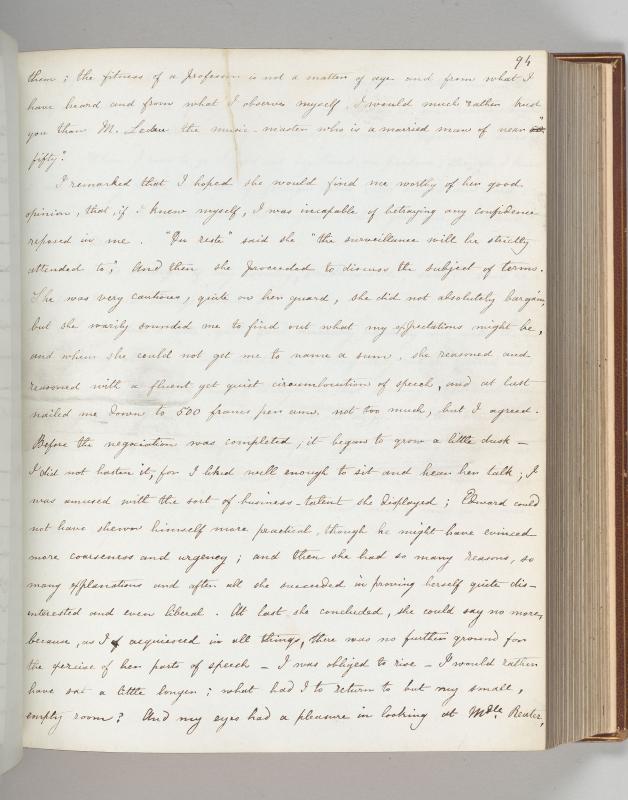 94
them ; the fitness of a professor is not a matter of age and from what I
have heard and from what I observe myself, I would much rather trust
you than M. Ledru the music-master who is a married man of near
fifty."
I remarked that I hoped she would find me worthy of her good
opinion, that, if I knew myself, I was incapable of betraying any confidence
reposed in me . "Du reste" said she "the surveillance will be strictly
attended to", And then she proceeded to discuss the subject of terms.
She was very cautious, quite on her guard, she did not absolutely bargain,
but she warily sounded me to find out what my expectations might be,
and when she could not get me to name a sum, she reasoned and
reasoned with a fluent yet quiet circumlocution of speech, and at last
nailed me down to 500 francs per ann. not too much, but I agreed.
Before the negociation was completed, it began to grow a little dusk –
I did not hasten it, for I liked well enough to sit and hear her talk ; I
was amused with the sort of business-talent she displayed ; Edward could
not have shewn himself more practical, though he might have evinced
more coarseness and urgency ; and then she had so many reasons, so
many explanations and after all she succeeded in proving herself quite dis-
interested and even liberal . At last she concluded, she could say no more,
because, as I acquiesced in all things, there was no further ground for
the exercise of her parts of speech – I was obliged to rise – I would rather
have sat a little longer ; what had I to return to but my small,
empty room? And my eyes had a pleasure in looking at Mdlle Reuter,